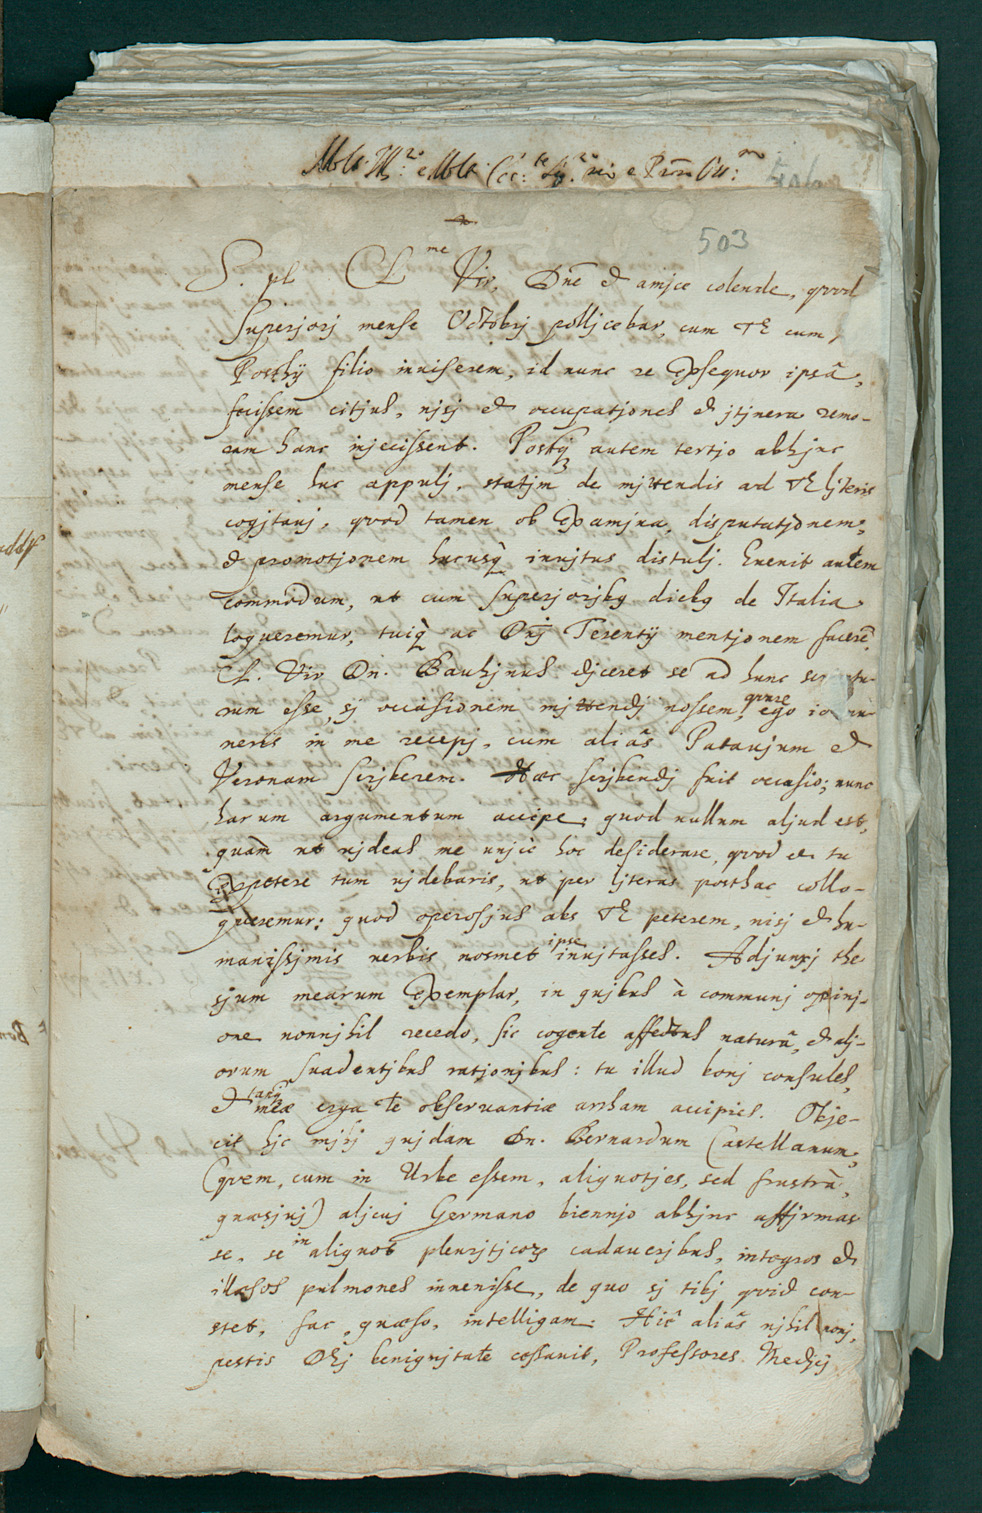 503
S. pl. Cl.me Vir, Dne & amjce colende, quod
superjorj mense Octobrj polljcebar, cum TE cum
Posthij filio inuiserem, id nunc re Exsequor ipsâ,
fecissem citjus, njsj & occupatjones & jtjnera remo-
ram hanc injecissent. Postq̃ autem tertjo abhjnc
mense huc appulj, statjm de mjttendis ad TE ljteris
cogjtauj, quod tamen ob Examjna, disputatjonem,
& promotjonem hucusq̀ inujtus distulj. Euenit autem
commodum, ut cum superjorjbq diebq de Italia
loqueremur, tuiq̀ ac Dnj Terentij mentjonem facerẽ,
Cl. Vir Dn. Bauhjnus djceret se ad hunc
rum esse, sj occasionem mjttendj nossem, quare ego
neris in me recepj, cum aliâs Patauium &
Veronam scrjberem. Haec scrjbendj fuit occasio; nunc
harum argumentum accipe, quod nullum aljud est,
quàm ut ujdeas me unjcè hoc desiderare, quod & tu
Expetere tum ujdebaris, ut per ljteras posthac collo-
queremur: quod operosjus abs TE peterem, nisj & hu-
manissjmis uerbis nosmet ipse inujtasses. Adjunxj the
sjum mearum Exemplar, in qujbus à communj opinj-
one nonnjhil recedo, sic cogente affectus naturâ, & alj-
orum suadentjbus ratjonjbus: tu illud bonj consules,
& tanq̃ meae erga te obseruantiae arrham accipies. Obje-
cit hjc mjhj qujdam Dn. Bernardum Castellanum,
(quem, cum in Urbe essem, aliquotjes, sed frustrà,
quaesjuj) aljcuj Germano biennjo abhjnc affjrmas
se, se in aliquot pleurjtjcorum cadauerjbus, integros &
illaesos pulmones inuenisse, de quo sj tibj quid con-
stet, fac, quaeso, intelligam. Hîc aliâs njhil nouj,
pestis Dej benignjtate cessauit, Professores Medjcj